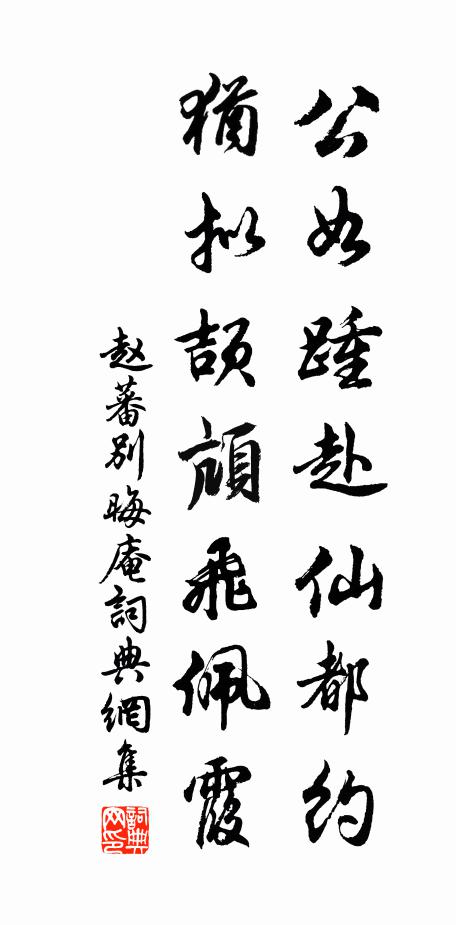 公如踵赴仙都约
猶拟颉頏飛佩霞
赵蕃别晦庵詞典網集
詞典网印